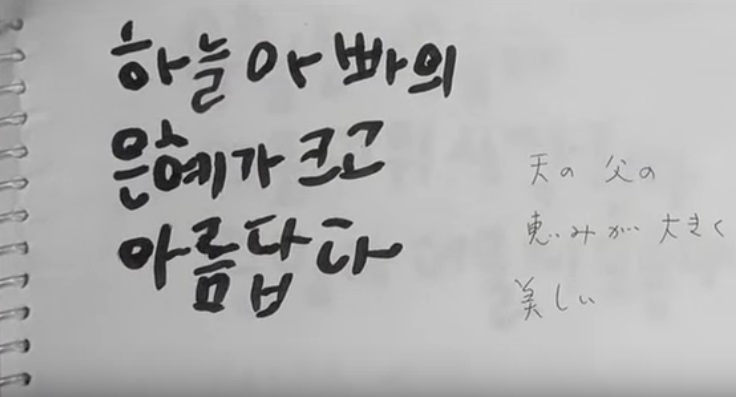 하늘 아빠의
은혜가 크고
아름답다
天の 父の
恵みが 大きく
美しい